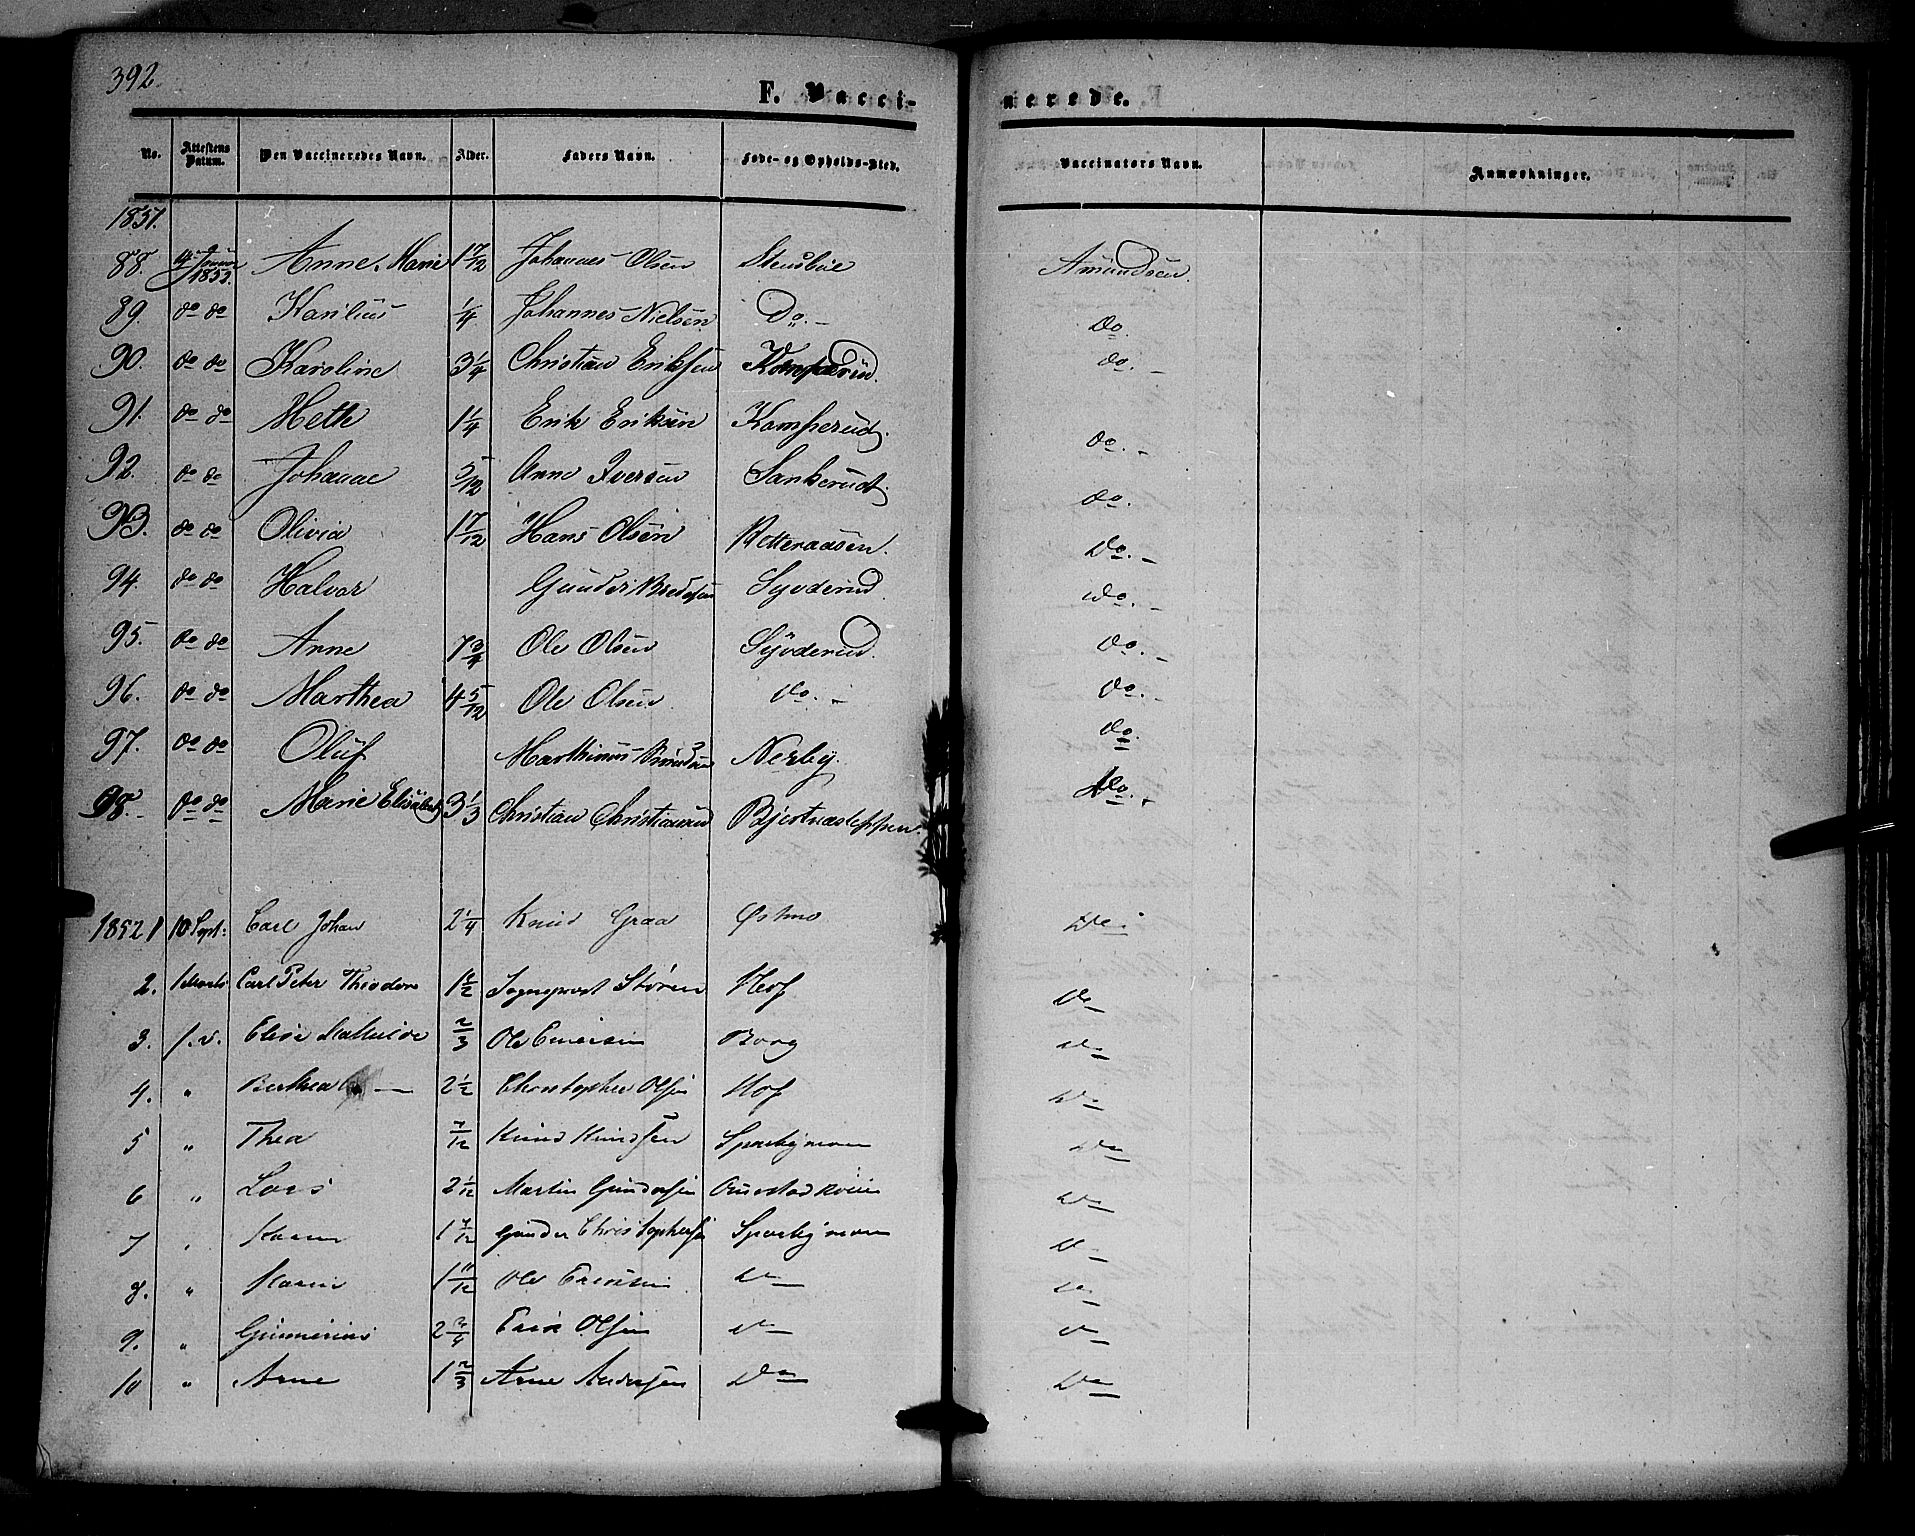 392.
F. Vacci- nerede.
No. Attestens Datum. Den Vaccineredes Navn. Alder. Faders Navn. Føde- og Opholds-Sted. Vaccinators Navn. Anmærkninger.
1851.
88. 1853. Anne Marie 1 7/12 Johannes Olsen Stensbøle Amundsen
89. do do Karilius 1/4 Johannes Nielsen Do. - Do.
90. do do Karoline 3 1/4 Christian Eriksen do. -
91. do do Meth 1 1/4 Erik Eriksen Kamperud. do. -
92. do do Johanne 5/12 Arne Iversen Sankerud. do.
93. do do Olivia 1 7/12 Hans Olsen Rotteraasen. Do. -
94. do do Halvor Gunder Bredesen Syvderud Do. -
95. do do Anne 7 3/4 Ole Olsen Syvderud. Do. -
96. do do Marthea 4 5/12 Ole Olsen Do. - Do. -
97. do do Oluf Marthinus Nerby. Do.
98. - do do Marie Elisabeth 3 1/3 Christian Christiansen Do. -
1852 1 10 Sept: Carl Johan 2 1/4 Knud Graa Østmo Do
2. 1 Marts Carl Peter Theodor 1 1/2 Sognepræst Støren Hof Do
3. Elise Mathilde 2/3 Ole Borg Do
4. " Berthea 2 1/2 Christopher Olsen Hof Do
5 " Thea 7/12 Knud Knudsen Do
6 " Lars 2 1/12 Martin Gundersen Do
7 " Karen 1 7/12 Gunder Christophersen Do
8. " Karen 1 11/12 Ole Do Do
9. " Gunnerius 2 3/4 Erik Olsen Do Do
10 " Arne 1 2/3 Arne Andersen Do Do